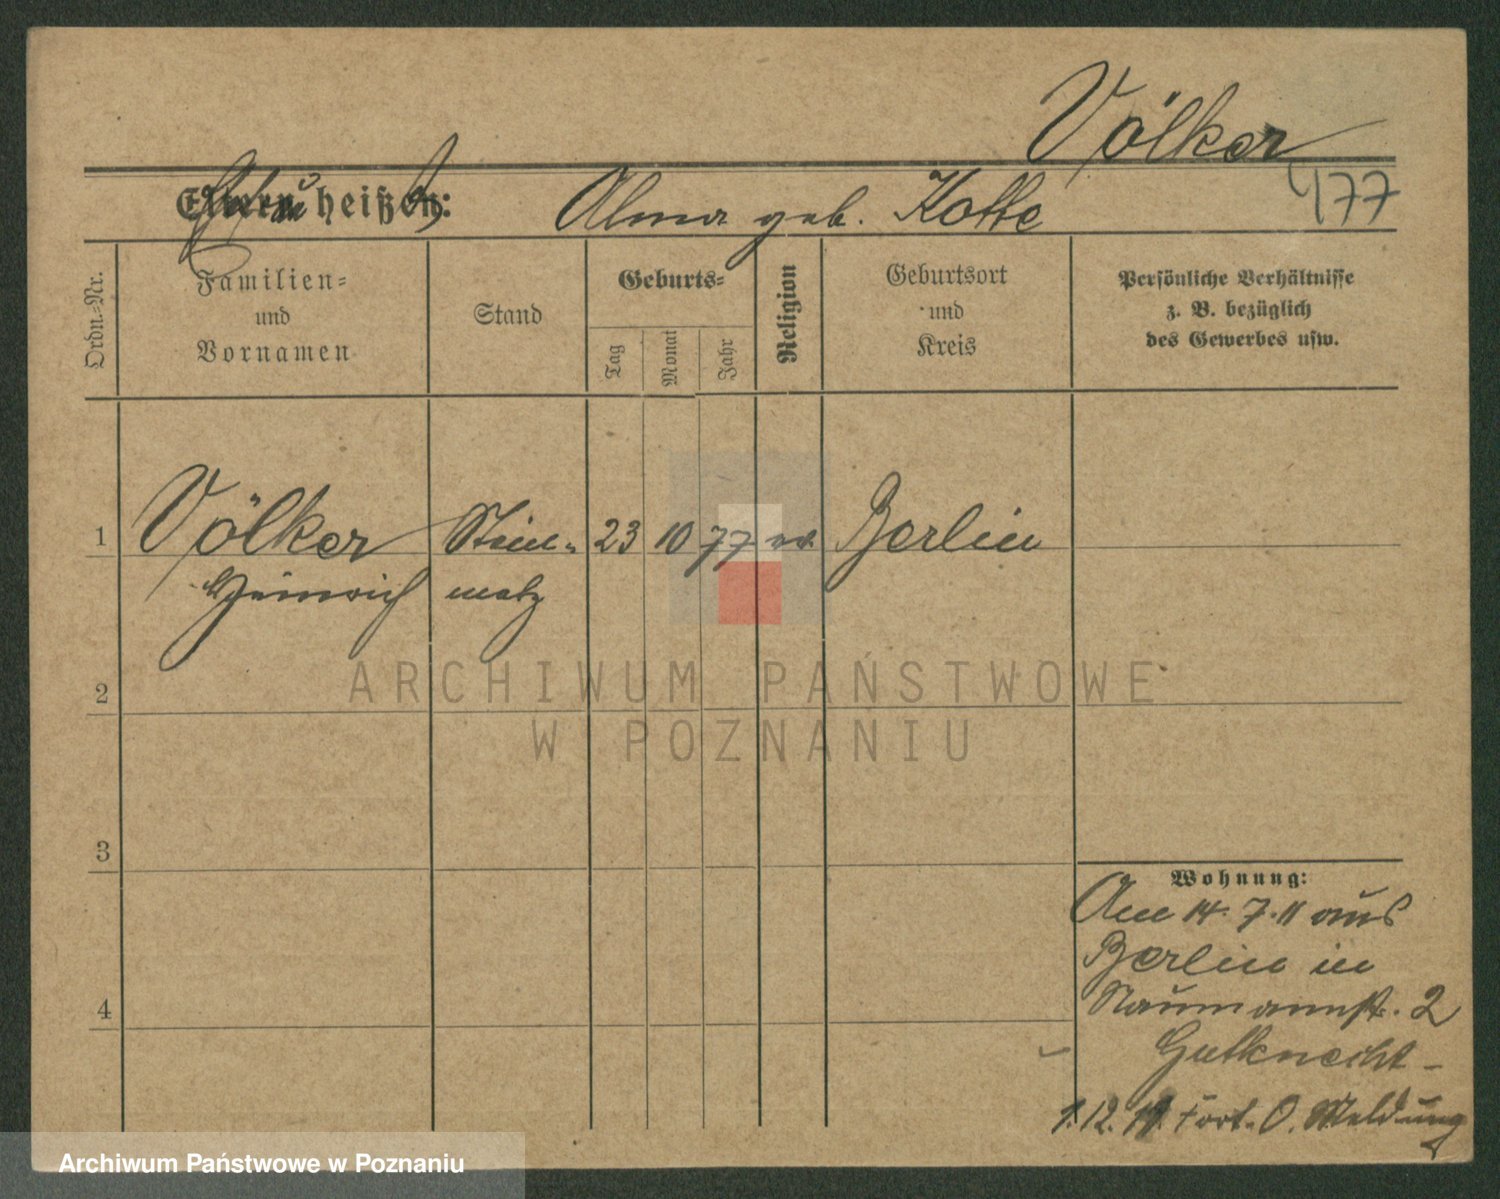 Völker
477
Eltern heißen: Alma geb. Kotte
Ordn.-Nr.
Familien-
und
Vornamen
Stand
Geburts-
Tag
Monat
Jahr
Religion
Geburtsort
und
Kreis
Persönliche Verhältnisse
z. B. bezüglich
des Gewerbes usw.
1 Völker Stein- 23 10 77 ev. Berlin
Heinrich metz
2
3
4
Wohnung:
Am 14. 7. 11 aus
Berlin in
Naumannstr. 2
Gutknecht
1. 12. 11. fort. O. Meldung
ARCHIWUM PAŃSTWOWE
W POZNANIU
Archiwum Państwowe w Poznaniu